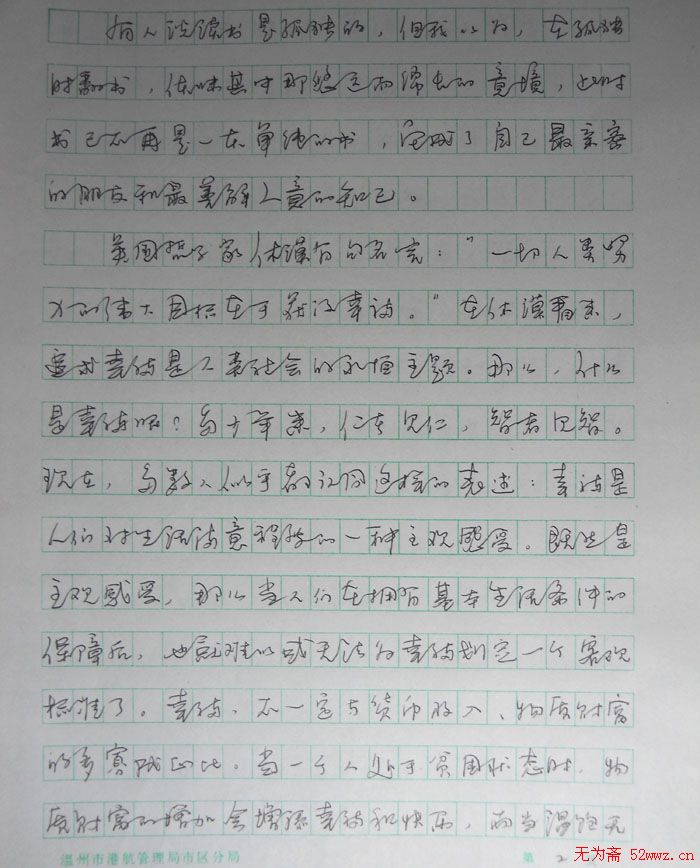 有人说读书是孤独的，但我以为，在孤独
时翻书，体味其中那悠远而绵长的意境，此时
书已不再是一本单纯的书，它成了自己最亲密
的朋友和最善解人意的知己。
英国哲学家休谟有句名言：“一切人类努
力的伟大目标在于获得幸福。”在休谟看来，
追求幸福是人类社会的永恒主题。那么，什么
是幸福呢？多少年来，仁者见仁，智者见智。
现在，多数人似乎都认同这样的表述：幸福是
人们对生活满意程度的一种主观感受。既然是
主观感受，那么当人们在拥有基本生活条件的
保障后，也就难以或无法为幸福划定一个客观
标准了。幸福，不一定与货币收入、物质财富
的多寡成正比。当一个人处于贫困状态时，物
质财富的增加会增添幸福和快乐，而当温饱无
温州市港航管理局市区分局
第 2
无为斋 52wwz.cn